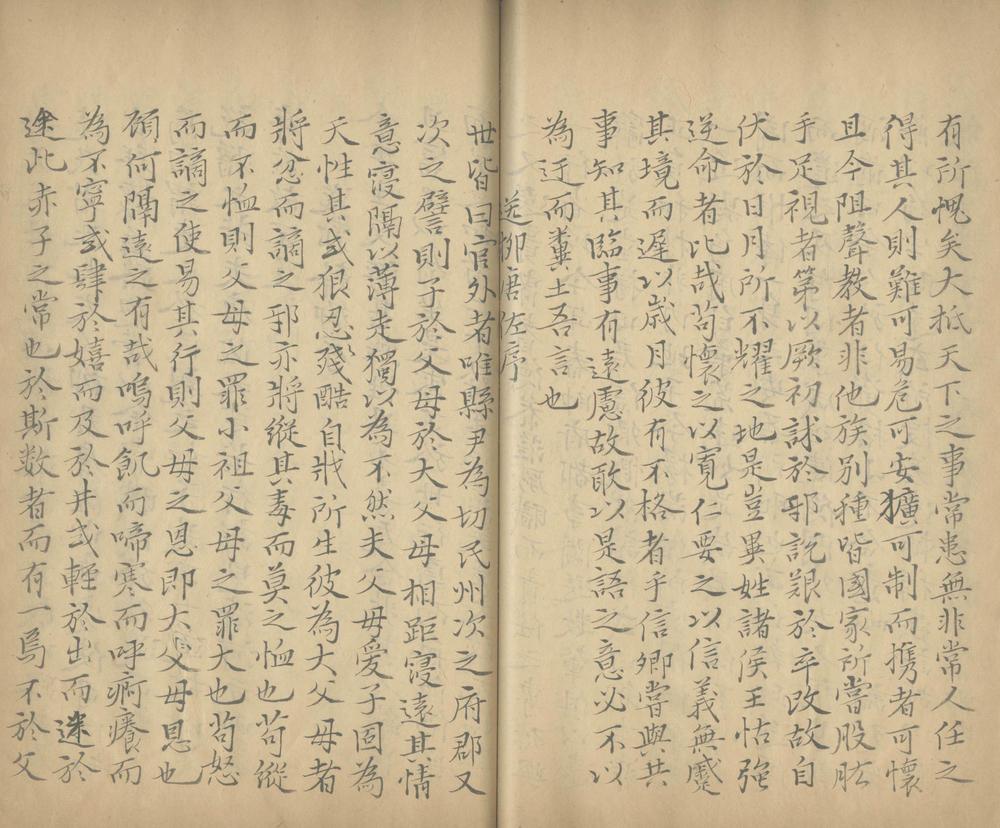 有所愧矣大抵天下之事常患無非常人任之
得其人則難可易危可安獷可制而携者可懷
且今阻聲教者非他族別種皆國家所當股肱
手足視者第以厥初訹於邪說艱於卒改故自
伏於日月所不耀之地是豈異姓諸侯王怙強
逆命者比哉茍懷之以寬仁要之以信義無蹙
其境而遲以歲月彼有不格者乎信卿嘗與共
事知其臨事有遠慮故敢以是語之意必不以
為迂而糞土吾言也
送柳唐佐序
世皆曰官外者唯縣尹為切民州次之府郡又
次之譬則子於父母於大父母相距寖遠其情
意寖隔以薄走獨以為不然夫父母愛子固為
天性其或狠忍殘酷自戕所生彼為大父母者
將忿而謫之邪亦將縱其毒而莫之恤也茍縱
而不恤則父母之罪小祖父母之罪大也茍怒
而謫之使易其行則父母之恩即大父母恩也
顧何隔遠之有哉嗚呼飢而啼寒而呼痾癢而
為不寧或肆於嬉而及於井或輕於出而迷於
途此赤子之常也於斯数者而有一焉不於父